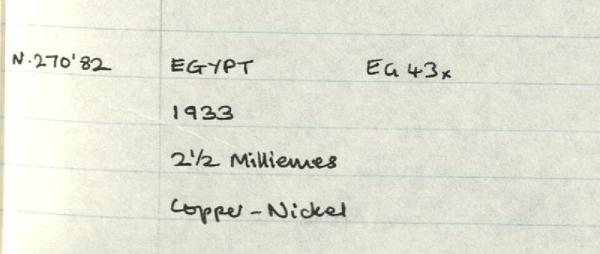 N.270'82 EGYPT EG 43x
1933
2½ Milliemes
Copper-Nickel